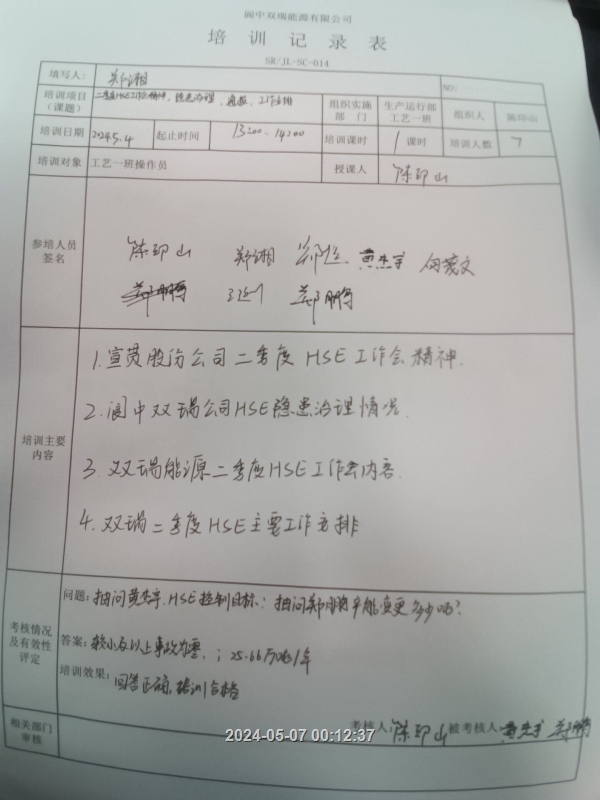 阆中双瑞能源有限公司
培训记录表
SR/JL-SC-014
填写人： 郑湘 NO:
培训项目（课题） 二季度HSE工作会精神、隐患治理、通报、工作安排 组织实施部门 生产运行部工艺一班 组织人 陈印山
培训日期 2024.5.4 起止时间 13:00-14:00 培训课时 1课时 培训人数 7
培训对象 工艺一班操作员 授课人 陈印山
参培人员签名
陈印山 郑湘
郑鹏
培训主要内容
1.宣贯股份公司二季度HSE工作会精神.
2.阆中双瑞公司HSE隐患治理情况.
3.双瑞能源二季度HSE工作会内容.
4.双瑞二季度HSE主要工作安排
考核情况及有效性评定
问题：抽问黄杰宇.HSE控制目标；抽问郑鹏产能变更多少吨？
答案：较小及以上事故为零，；25.66万吨/年
培训效果：回答正确，培训合格
考核人：陈印山 被考核人：黄杰宇 郑鹏
相关部门审核
2024-05-07 00:12:37